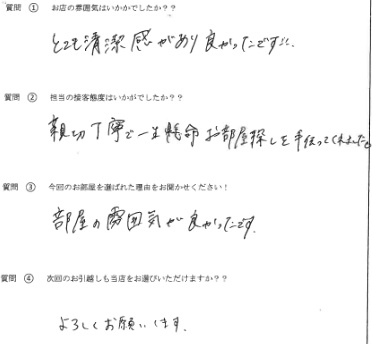 質問 ① お店の雰囲気はいかがでしたか??
とても清潔感があり良かったです。
質問 ② 担当の接客態度はいかがでしたか??
親切丁寧で一生懸命お部屋探しを手伝ってくれました。
質問 ③ 今回のお部屋を選ばれた理由をお聞かせください!
部屋の雰囲気が良かったです。
質問 ④ 次回のお引越しも当店をお選びいただけますか??
よろしくお願いします.